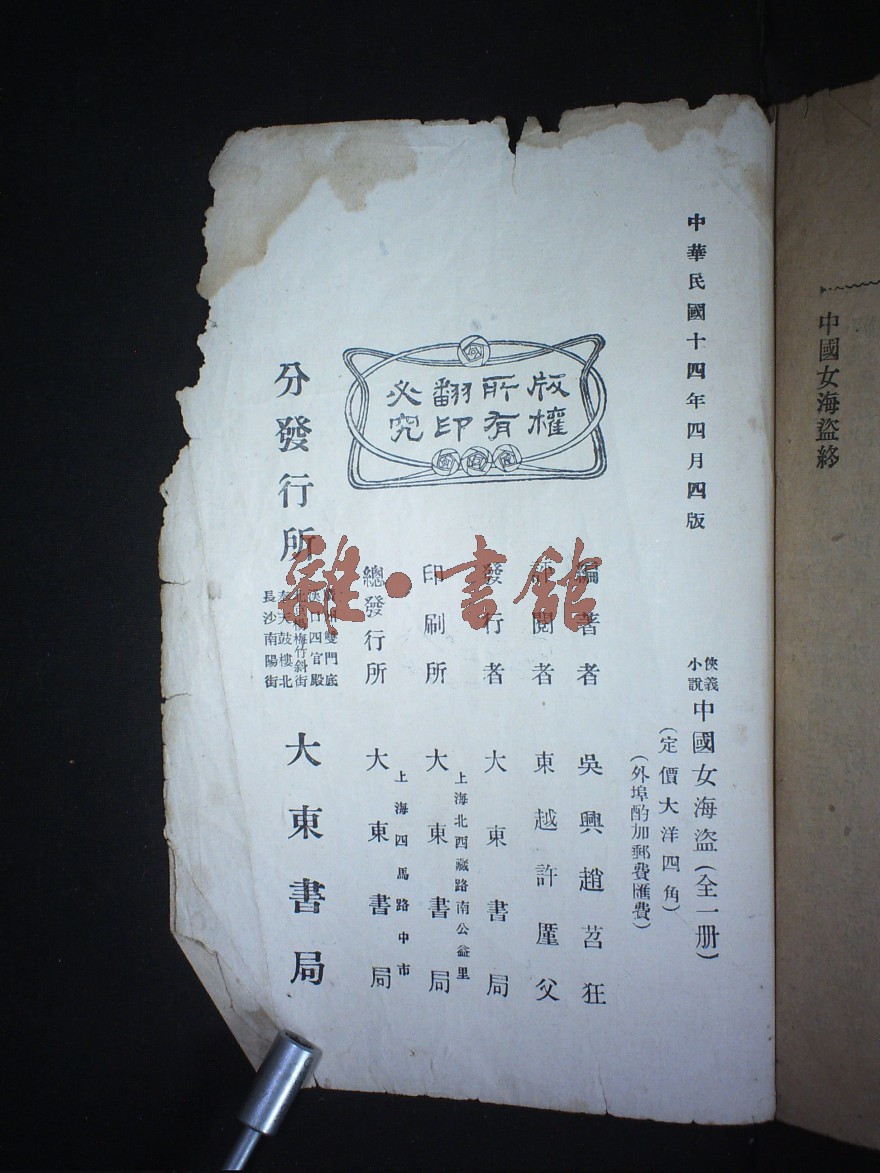 中國女海盜終
中華民國十四年四月四版
俠義小說
中國女海盜(全一册)
(定價大洋四角)
(外埠酌加郵費匯費)
版權所有翻印必究
編著者 吳興趙苕狂
評閱者 東越許廑父
發行者 大東書局
上海北西藏路南公益里
印刷所 大東書局
上海四馬路中市
總發行所 大東書局
分發行所
雙門底
漢口四官殿
北京楊梅竹斜街
奉天鼓樓北
長沙南陽街
大東書局
雜·書館